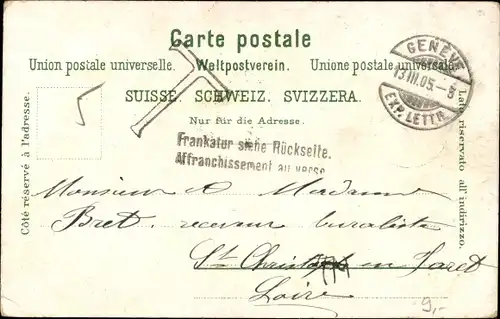 Carte postale
Union postale universelle. Weltpostverein. Unione postale universale.
SUISSE. SCHWEIZ. SVIZZERA.
Nur für die Adresse.
Côté réservé à l'adresse.
Lato riservato all' indirizzo.
GENÈVE
13.III.05.-8
EXP. LETTR.
T
Frankatur siehe Rückseite.
Affranchissement au verso
Monsieur & Madame
Bret, receveur buraliste
St Christo en Jaret
Loire
9,-